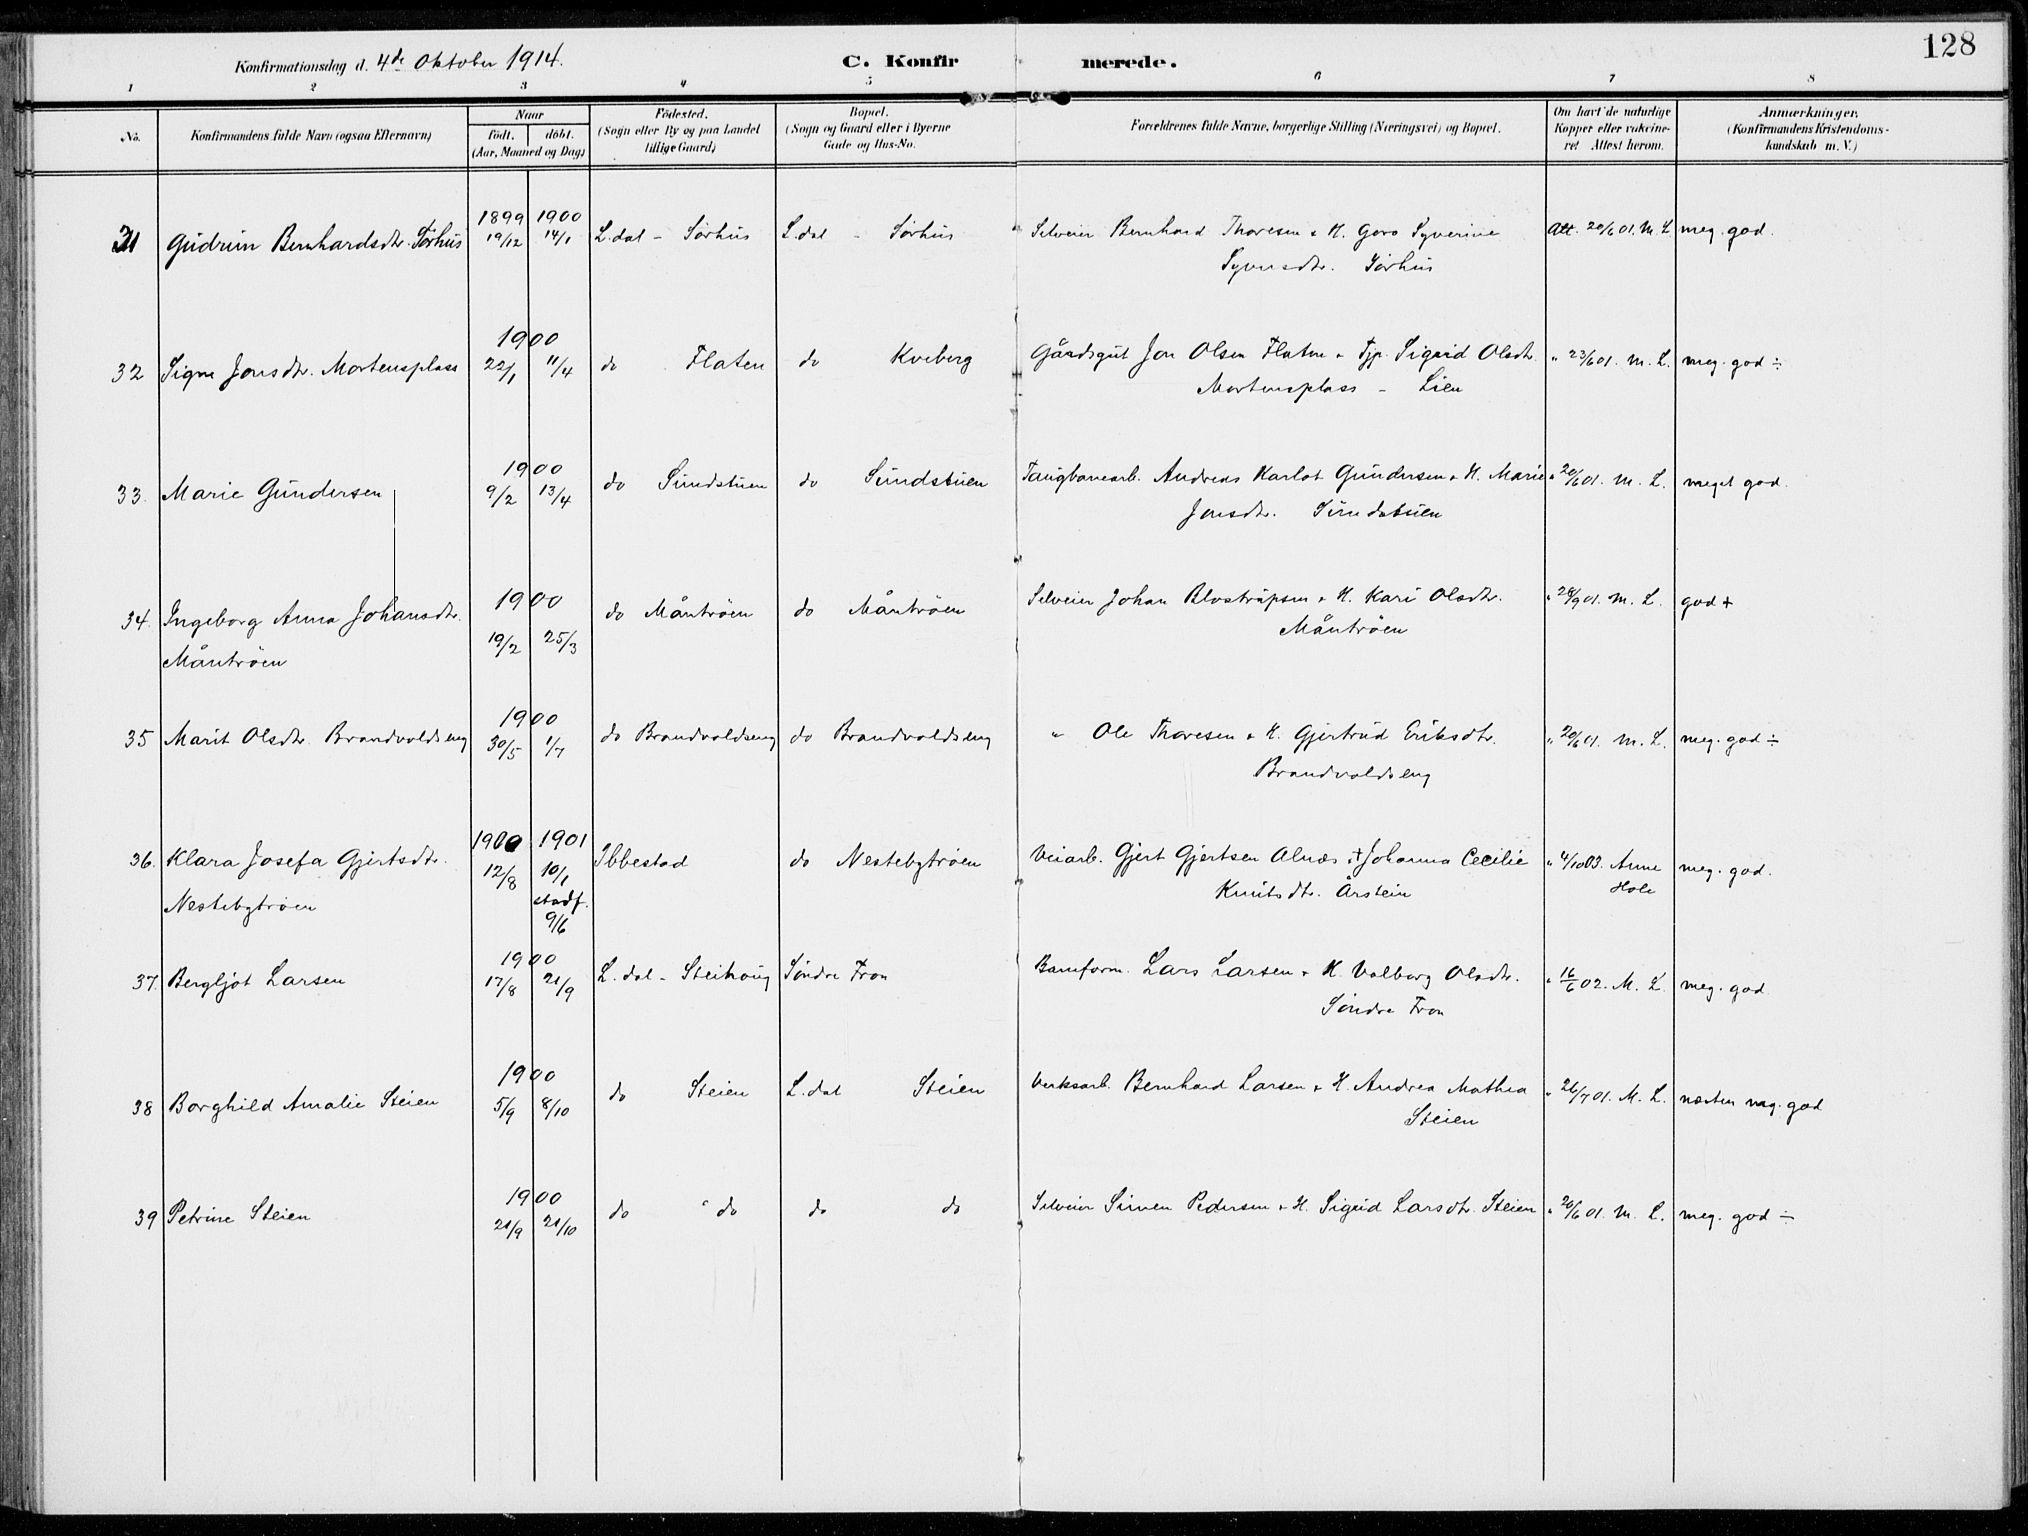 128
Konfirmationsdag d. 4de Oktober 1914.
C. Konfirmerede.
1 2 3 4 5 6 7 8
No.
Konfirmandens fulde Navn (ogsaa Efternavn)
Naar
födt. döbt.
(Aar, Maaned og Dag)
Födested.
(Sogn eller By og paa Landet
tillige Gaard)
Bopæl.
(Sogn og Gaard eller i Byerne
Gade og Hus-No.
Forældrenes fulde Navne, borgerlige Stilling (Næringsvei) og Bopæl.
Om havt de naturlige
Kopper eller vakcine-
ret Attest herom.
Anmærkninger.
(Konfirmandens Kristendoms-
kundskab m. V.)
1899 1900
31 Gudrun Bernhardsdtr. Sörhus 19/12 14/1 L.dal - Sörhus L.dal - Sörhus Selveier Bernhard Thoresen & H. Goro Syverine Att. 20/6 01. M. L. meg. god.
Syversdtr. Sörhus
1900
32 Signe Jonsdtr. Mortensplass 22/1 11/4 do Flaten do Kveberg Gårdsgut Jon Olsen Flaten & Tjp. Sigrid Olsdtr. " 23/6 01. M. L. meg. god ÷
Mortensplass - Lien
1900
33. Marie Gundersen 9/2 13/4 do Sundstuen do Sundstuen Taugbanearb. Andreas Karlot Gundersen & H. Marie " 20/6 01. M. L. meget god.
Jonsdtr. Sundstuen
1900
34. Ingeborg Anna Johansdtr. 19/2 25/3 do Måntröen do Måntröen Selveier Johan Blostrupsen & H. Kari Olsdtr. " 28/9 01. M. L. god +
Måntröen Måntröen
1900
35 Marit Olsdtr. Brandvoldseng 30/5 1/7 do Brandvoldseng do Brandvoldseng " Ole Thoresen & H. Gjertrud Eriksdtr. " 20/6 01. M. L. meg. god ÷
Brandvoldseng
1900 1901
36. Klara Josefa Gjertsdtr. 12/8 10/1 Ibbestad do Nestebytröen Veiarb. Gjert Gjertsen Alnæs & + Johanna Cecilie " 4/10 03. Anne meg. god.
Nestebytröen stadf. Knutsdtr. Årstein Hole
9/6
1900
37. Bergljot Larsen 17/8 21/9 L.dal - Steihaug Söndre Fron Baneform. Lars Larsen & H. Valborg Olsdtr. " 16/6 02. M. L. meg. god
Söndre Fron
1900
38 Borghild Amalie Steien 5/9 8/10 do Steien L.dal Steien Verksarb. Bernhard Larsen & H. Andrea Mathea " 26/7 01. M. L. næsten meg. god
Steien
1900
39 Petrine Steien 21/9 21/10 do " do do do Selveier Simen Pedersen & H. Sigrid Larsdtr. Steien " 20/6 01. M. L. meg. god ÷